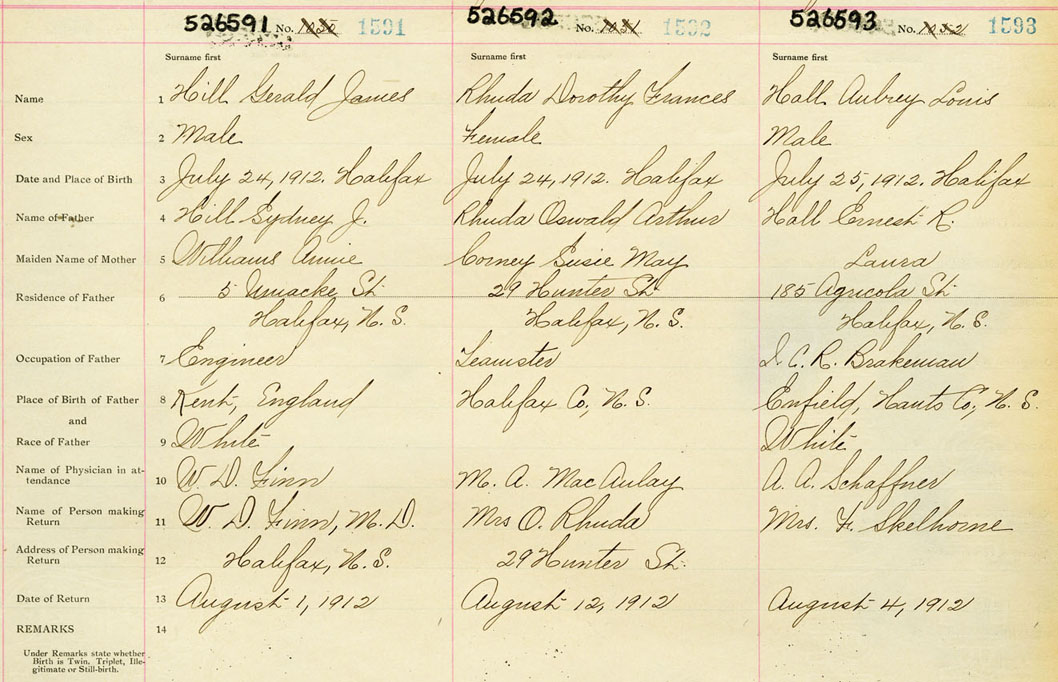 526591 No. 1591
526592 No. 1592
526593 No. 1593
Surname first Surname first Surname first
Name 1 Hill Gerald James Rhuda Dorothy Frances Hall Aubrey Louis
Sex 2 Male Female Male
Date and Place of Birth 3 July 24, 1912. Halifax July 24, 1912. Halifax July 25, 1912. Halifax
Name of Father 4 Hill Sydney J. Rhuda Oswald Arthur Hall Ernest R.
Maiden Name of Mother 5 Williams Annie Corney Susie May Laura
Residence of Father 6 5 Uniacke St. 29 Hunter St. 185 Agricola St.
Halifax, N.S. Halifax, N.S. Halifax, N.S.
Occupation of Father 7 Engineer Teamster I.C.R. Brakeman
Place of Birth of Father 8 Kent, England Halifax Co., N.S. Enfield, Hants Co., N.S.
and
Race of Father 9 White White
Name of Physician in at-
tendance 10 W. D. Finn M. A. MacAulay A. A. Schaffner
Name of Person making
Return 11 W. D. Finn, M.D. Mrs O. Rhuda Mrs. F. Skelhorne
Address of Person making
Return 12 Halifax, N.S. 29 Hunter St.
Date of Return 13 August 1, 1912 August 12, 1912 August 4, 1912
REMARKS 14
Under Remarks state whether
Birth is Twin, Triplet, Ille-
gitimate or Still-birth.